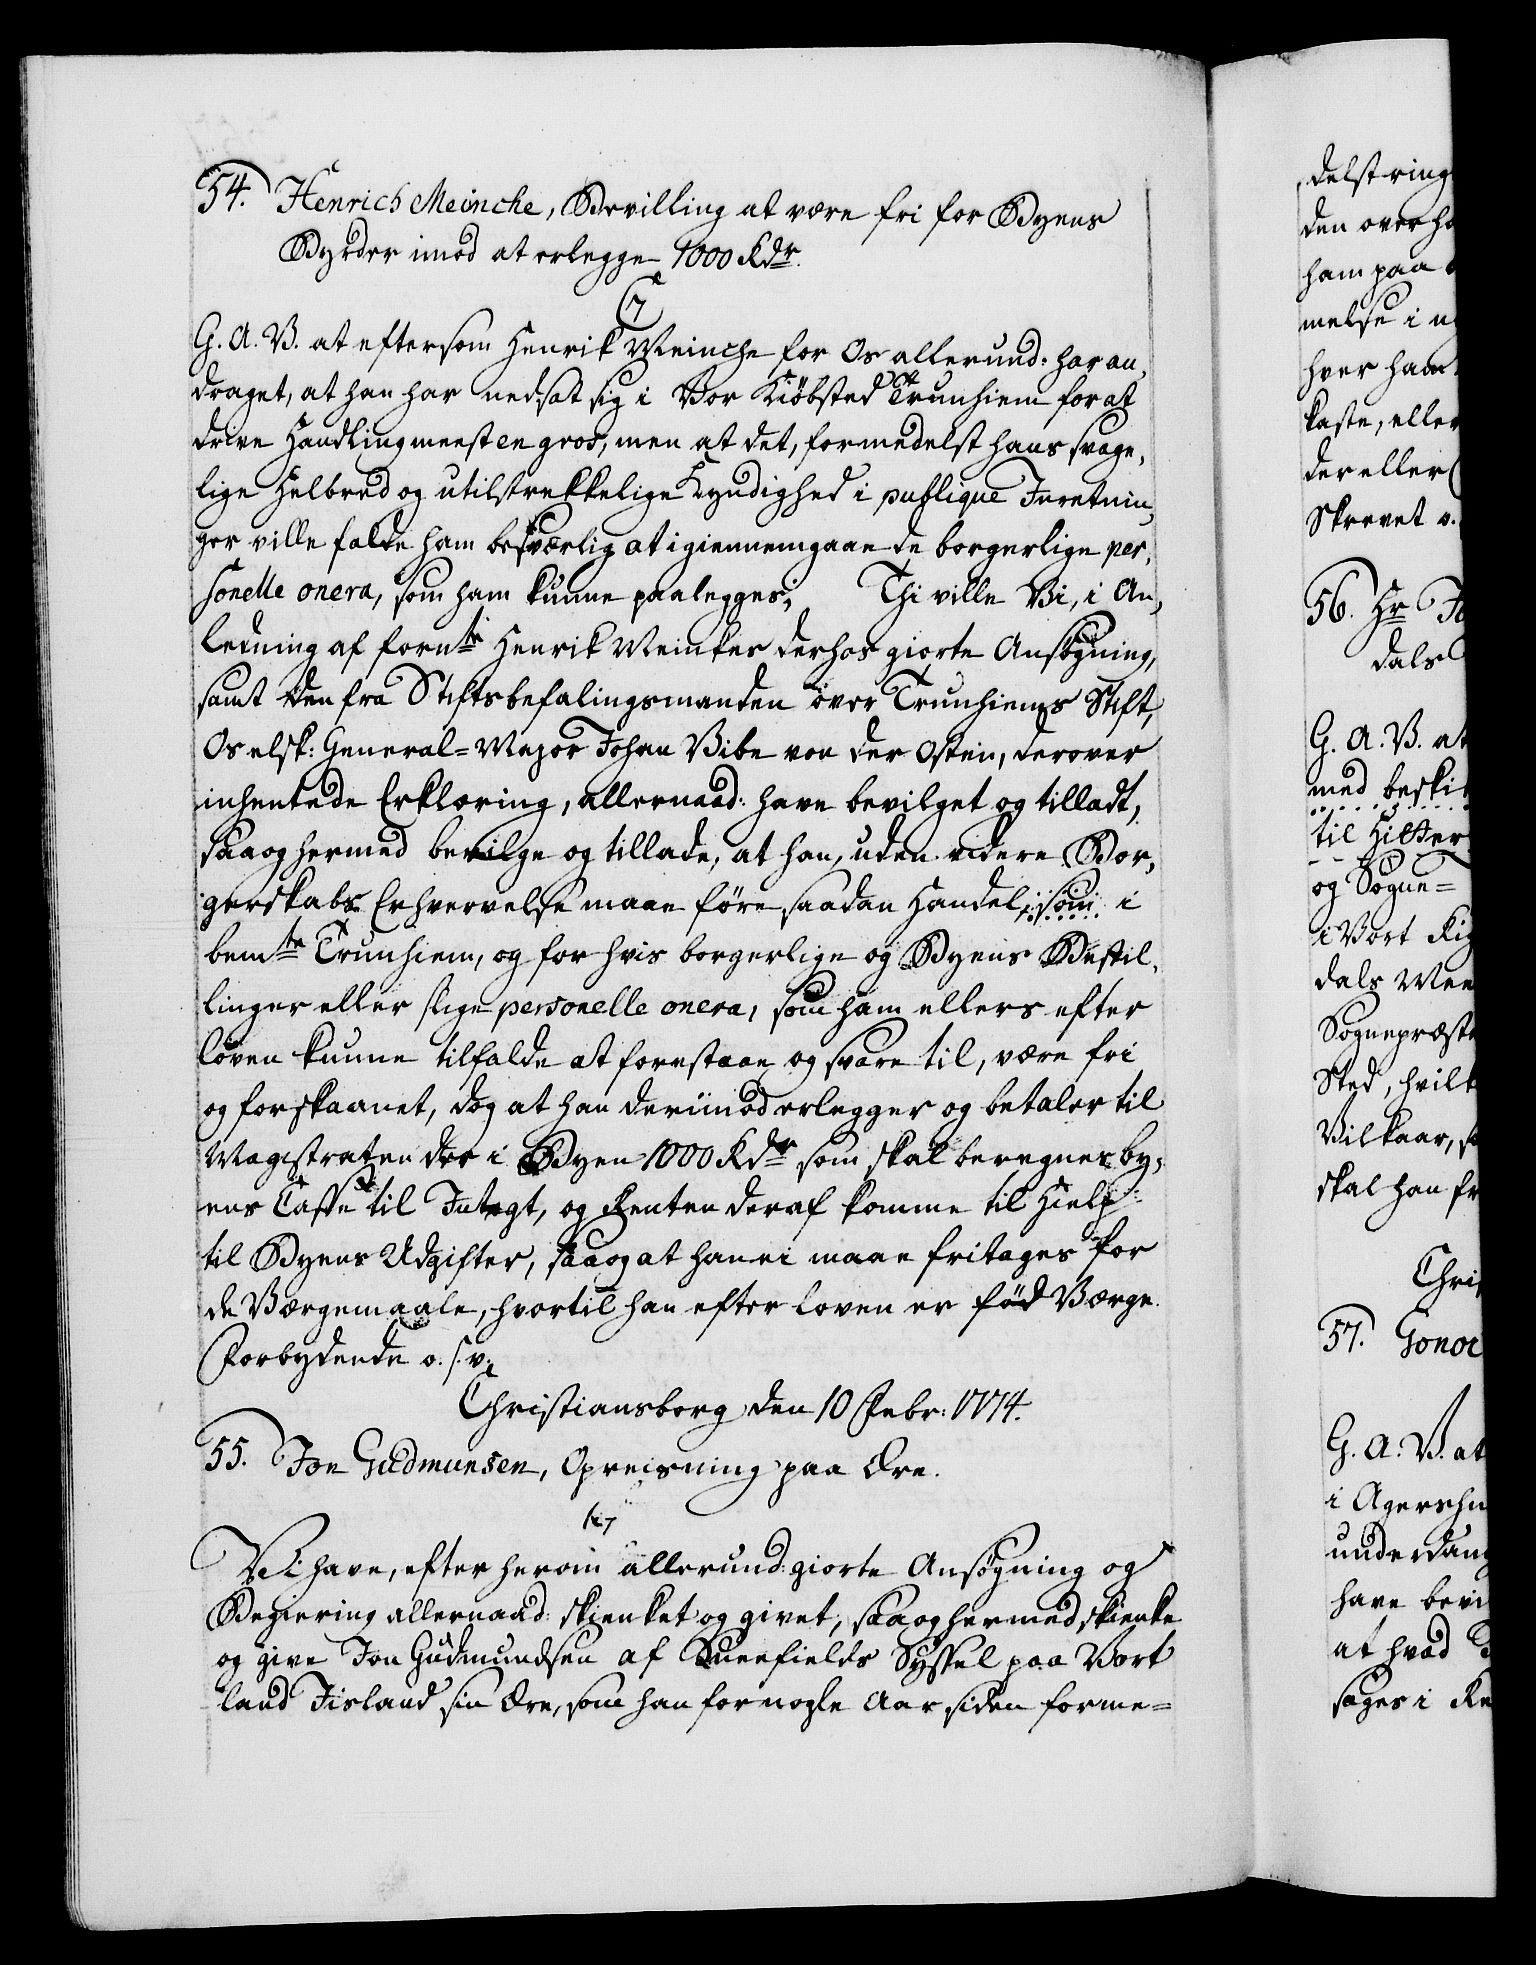 54. Henrich Meinche, Bevilling at være fri for Byens
Byrder imod at erlegge 1000 Rdr.
G. A. V. at eftersom Henrik Meinche for Os allerund: har an,
draget, at han har nedsat sig i Vor Kiöbsted Trunhiem for at
drive Handling meest en gros, men at det, formedelst hans svage,
lige Helbred og utilstrekkelige Kyndighed i publique Inretnin,
ger ville falde ham besværlig at igiennemgaae de borgerlige per,
sonelle onera, som ham kunne paalegges; Thi ville Vi, i An,
ledning af fornte Henrik Meinkes derhos giorte Ansøgning,
samt den fra Stiftsbefalingsmanden over Trunhiems Stift,
Os elsk: General-Major Johan Vibe von der Osten, derover
inhentede Erklæring, allernaad: have bevilget og tilladt,
saa og hermed bevilge og tillade, at han, uden videre Bor,
gerskabs Erhvervelse maae före saadan Handel, som i
bemte Trunhiem, og for hvis borgerlige og Byens Bestil,
linger eller slige personelle onera, som ham ellers efter
loven kunne tilfalde at forestaae og svare til, være fri
og forskaanet, dog at han derimod erlegger og betaler til
Magistraten der i Byen 1000 Rdr som skal beregnes by,
ens Casse til Indtegt, og Renten deraf komme til Hielp
til Byens Udgifter, saa og at han ei maae fritages for
de Værgemaale, hvortil han efter loven er född Værge.
Forbydende o. s. v.
Christiansborg den 10 Febr: 1774.
55. Jon Gudmunsen, Opreisning paa Ære.
Vi have, efter herom allerund: giorte Ansøgning og
Begiering allernaad: skienket og givet, saa og hermed skienke
og give Jon Gudmundsen af Sneefields Syssel paa Vort
land Iisland sin Ære, som han for nogle Aar siden forme=
delst ring
den over ha
ham paa
melse i
hver ham
kaste, eller
der eller
Skrevet o.
56. Hr
dals
G. A. V. at
med beski
til Hitter
og Sogne=
i Vort Rig
dals Mee
Sognepræste
Sted, hvilk
Vilkaar, s
skal han fr
Chri
57.
G. A. V. at
i Agershu
underdan
have bevi
at hvad
søges i Re